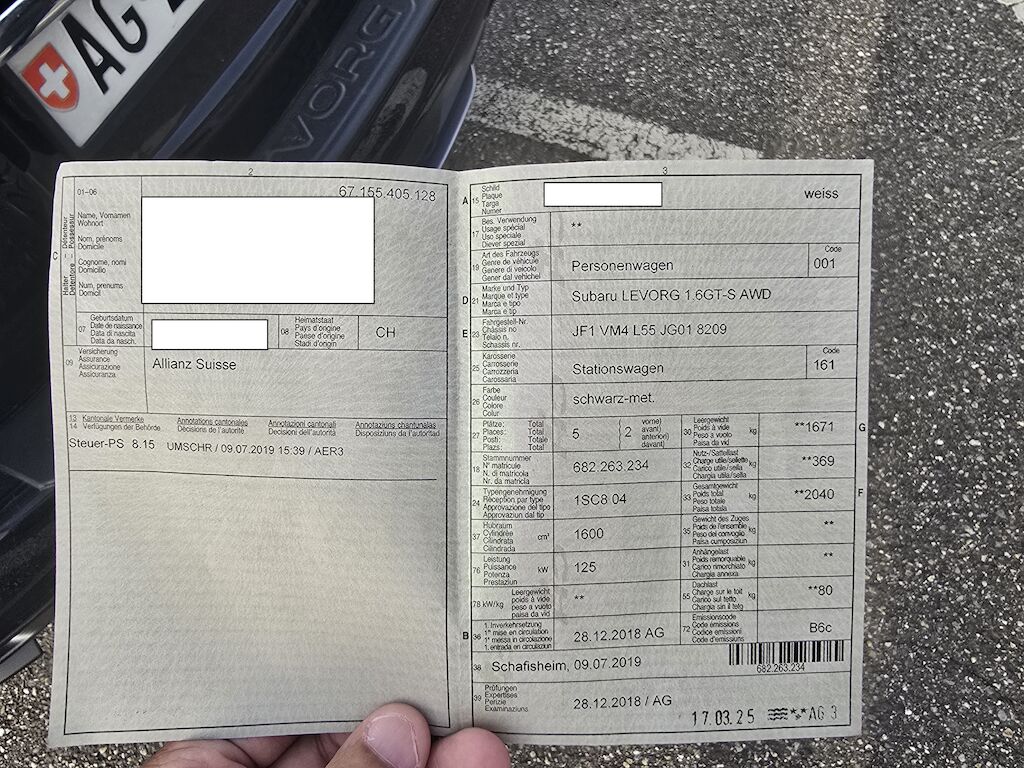 AG
VORG
2
01–06
67.155.405.128
C
Halter
Détenteur
Detentore
Possessur
Name, Vornamen
Wohnort
Nom, prénoms
Domicile
Cognome, nomi
Domicilio
Num, prenums
Domicil
07
Geburtsdatum
Date de naissance
Data di nascita
Data da nasch.
08
Heimatstaat
Pays d'origine
Paese d'origine
Stadi d'origin
CH
09
Versicherung
Assurance
Assicurazione
Assicuranza
Allianz Suisse
13 Kantonale Vermerke
14 Verfügungen der Behörde
Annotations cantonales
Décisions de l'autorité
Annotazioni cantonali
Decisioni dell'autorità
Annotaziuns chantunalas
Disposiziuns da l'autoritad
Steuer-PS 8.15 UMSCHR / 09.07.2019 15:39 / AER3
3
A 15
Schild
Plaque
Targa
Numer
weiss
17
Bes. Verwendung
Usage spécial
Uso speciale
Diever spezial
**
19
Art des Fahrzeugs
Genre de véhicule
Genere di veicolo
Gener dal vehichel
Personenwagen
Code
001
D 21
Marke und Typ
Marque et type
Marca e tipo
Marca e tip
Subaru LEVORG 1.6GT-S AWD
E 23
Fahrgestell-Nr.
Châssis no
Telaio n.
Schassis nr.
JF1 VM4 L55 JG01 8209
25
Karosserie
Carrosserie
Carrozzeria
Carossaria
Stationswagen
Code
161
26
Farbe
Couleur
Colore
Colur
schwarz-met.
27
Plätze: Total
Places: Total
Posti: Totale
Plazs: Total
5
2
vorne)
avant)
anteriori)
davant)
30
Leergewicht
Poids à vide
Peso a vuoto
Paisa da vid
kg
**1671
G
18
Stammnummer
N° matricule
N. di matricola
Nr. da matricla
682.263.234
32
Nutz-/Sattellast
Charge utile/sellette
Carico utile/sella
Chargia utila/sella
kg
**369
24
Typengenehmigung
Réception par type
Approvazione del tipo
Approvaziun dal tip
1SC8 04
33
Gesamtgewicht
Poids total
Peso totale
Paisa totala
kg
**2040
F
37
Hubraum
Cylindrée
Cilindrata
Cilindrada
cm³
1600
35
Gewicht des Zuges
Poids de l'ensemble
Peso del convoglio
Paisa cumposiziun
kg
**
76
Leistung
Puissance
Potenza
Prestaziun
kW
125
31
Anhängelast
Poids remorquable
Carico rimorchiato
Chargia annexa
kg
**
78 kW/kg
Leergewicht
poids à vide
peso a vuoto
paisa da vid
**
55
Dachlast
Charge sur le toit
Carico sul tetto
Chargia sin il tetg
kg
**80
B 36
1. Inverkehrsetzung
1re mise en circulation
1a messa in circolazione
1. entrada en circulaziun
28.12.2018 AG
72
Emissionscode
Code émissions
Codice emissioni
Code d'emissiuns
B6c
38
Schafisheim, 09.07.2019
682.263.234
39
Prüfungen
Expertises
Perizie
Examinaziuns
28.12.2018 / AG
17.03.25
AG 3